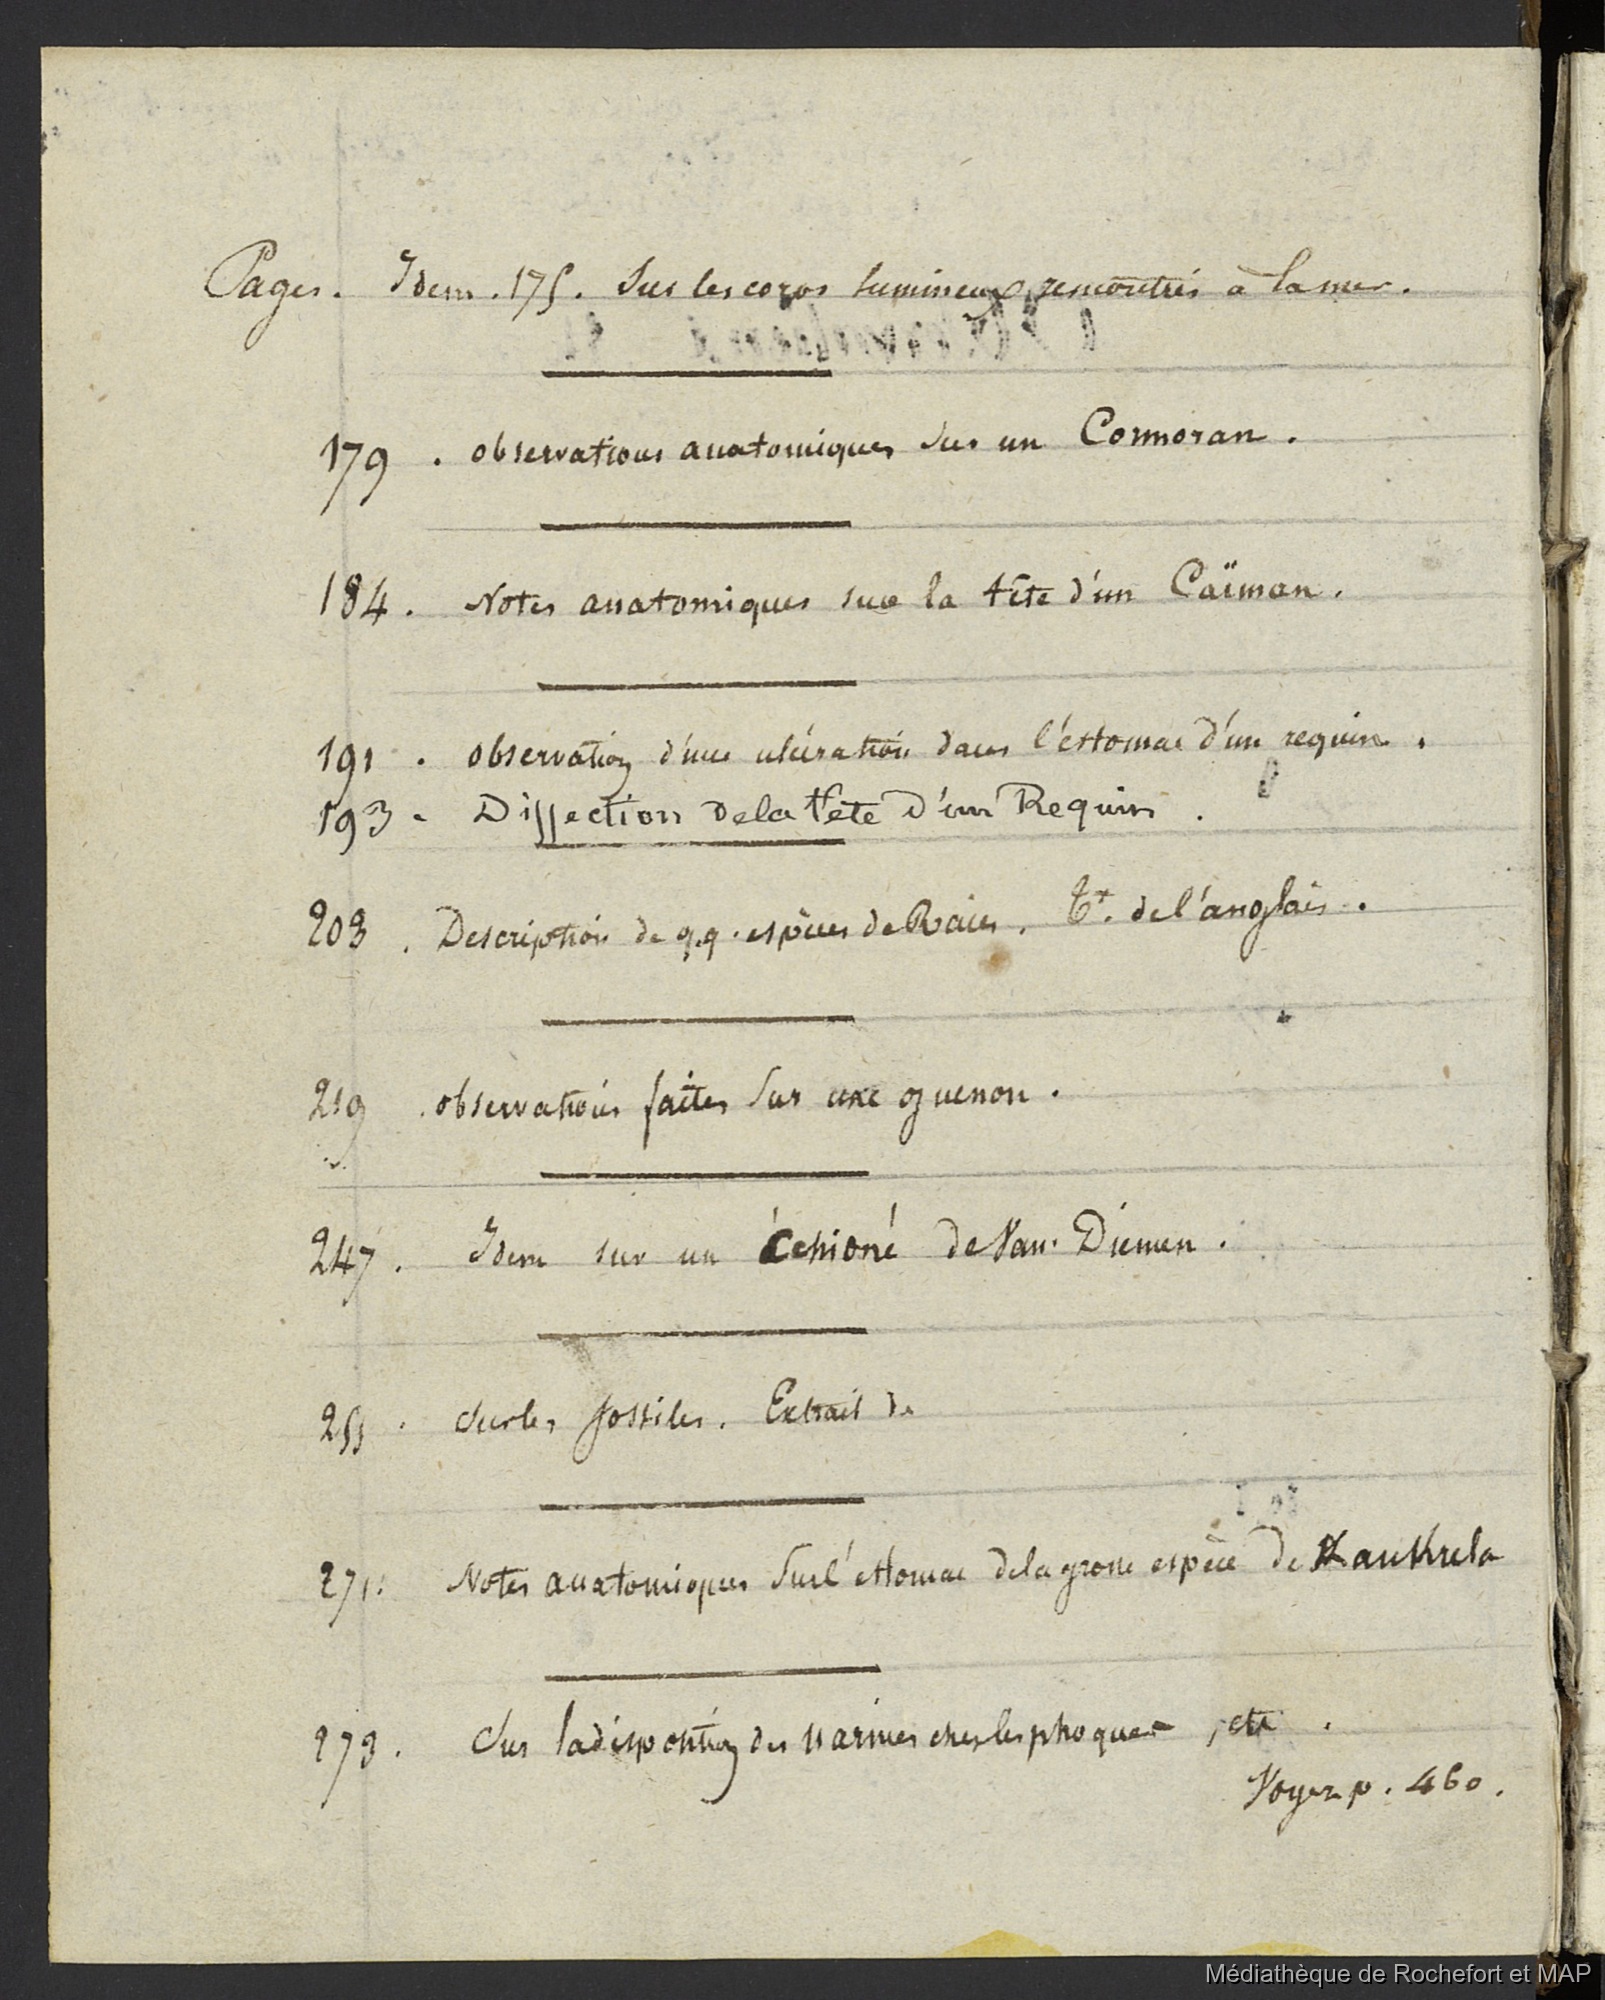 Pages. Idem. 175. Sur les corps lumineux remontrés à la mer.
179 . observations anatomiques sur un Cormoran .
184 . Notes anatomiques sur la tête d'un Caïman .
191 . observation d'une ulcération dans l'estomac d'un requin .
193 . Dissection de la tête d'un Requin .
203 . Description de q.q. espèces de Raies . tr. de l'anglais .
219 . observations faites sur une guenon .
247 . Idem sur un échidné de Van. Diemen .
255 . Sur les fossiles . Extrait de
271 . Notes anatomiques sur l'estomac de la grosse espèce de Kankrela
273 . Sur la disposition des narines chez les phoques , etc .
Voyez p . 460 .
Médiathèque de Rochefort et MAP